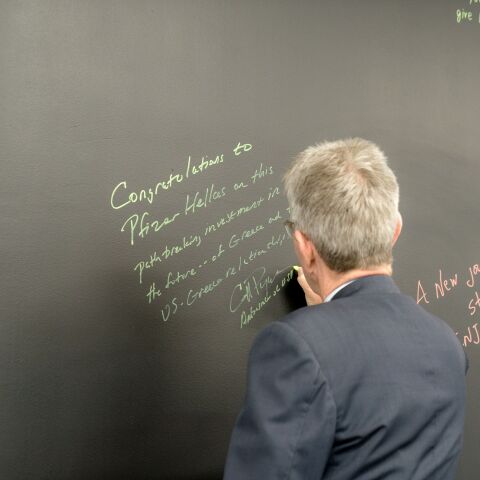 give
Congratulations to
Pfizer Hellas on this
pathbreaking investment in
the future... of Greece and
US-Greece relationship
Ambassador
A New
st
NJ